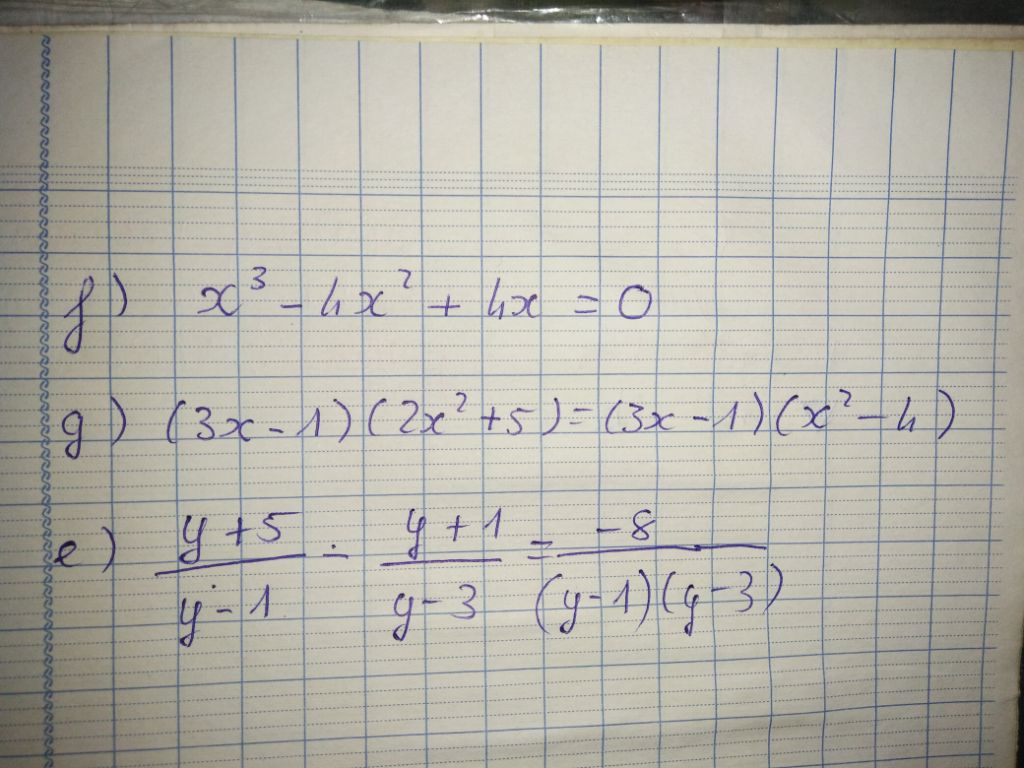 f) x³ - 4x² + 4x = 0
g) (3x - 1)(2x² + 5) = (3x - 1)(x² - 4)
e) (y + 5)/(y - 1) - (y + 1)/(y - 3) = -8/((y - 1)(y - 3))